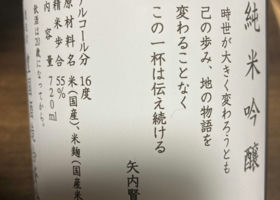 純米吟醸
時世が大きく変わろうとも
己の歩み、地の物語を
変わることなく
この一杯は伝え続ける
矢内賢
アルコール分 16度
原材料名 米(国産)、米麹(国産米
精米歩合 55%
内容量 720ml
飲酒は20歳になってから。